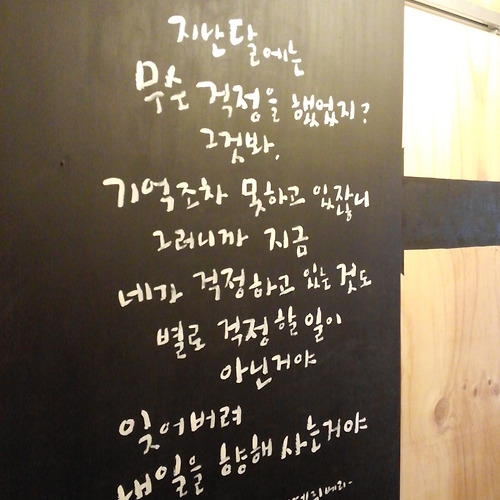 지난달에는
무슨 걱정을 했었지?
그것봐,
기억조차 못하고 있잖니
그러니까 지금
네가 걱정하고 있는 것도
별로 걱정할 일이
아닌거야
잊어버려
내일을 향해 사는거야